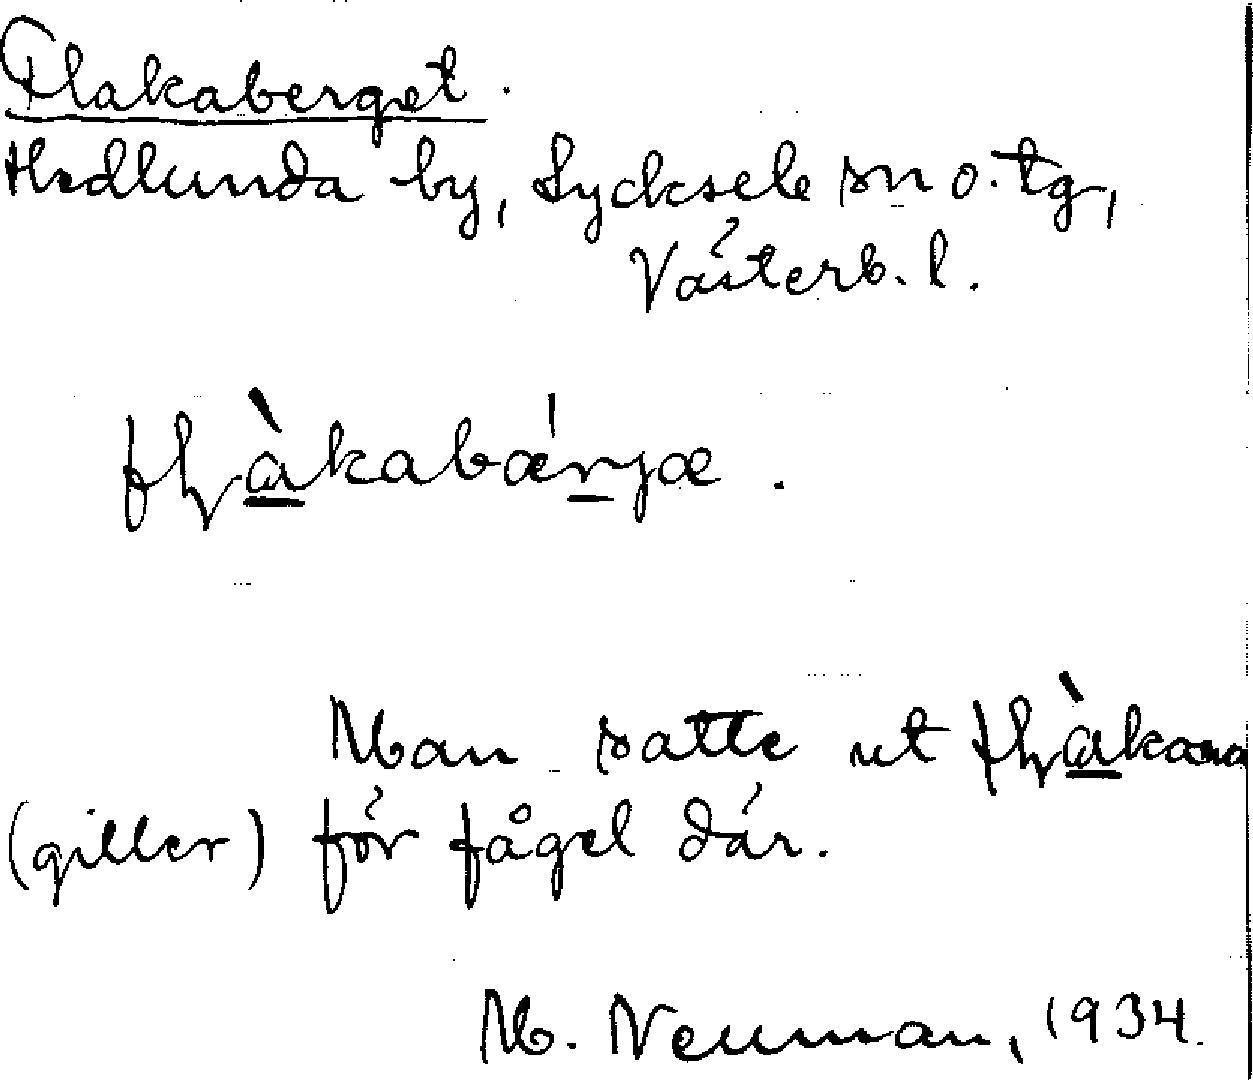 Flakaberget.
Hedlunda by, Lycksele sn o. tg,
Västerb. l.
flɑ̀kabǽrjæ.
Man satte ut flɑ̀kana
(giller) för fågel där.
M. Neuman, 1934.